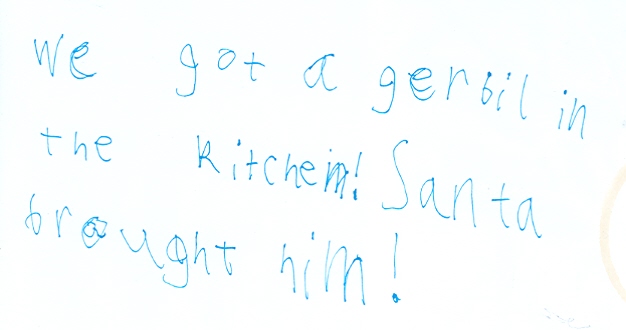 We got a gerbil in
the kitchein! Santa
brought him!